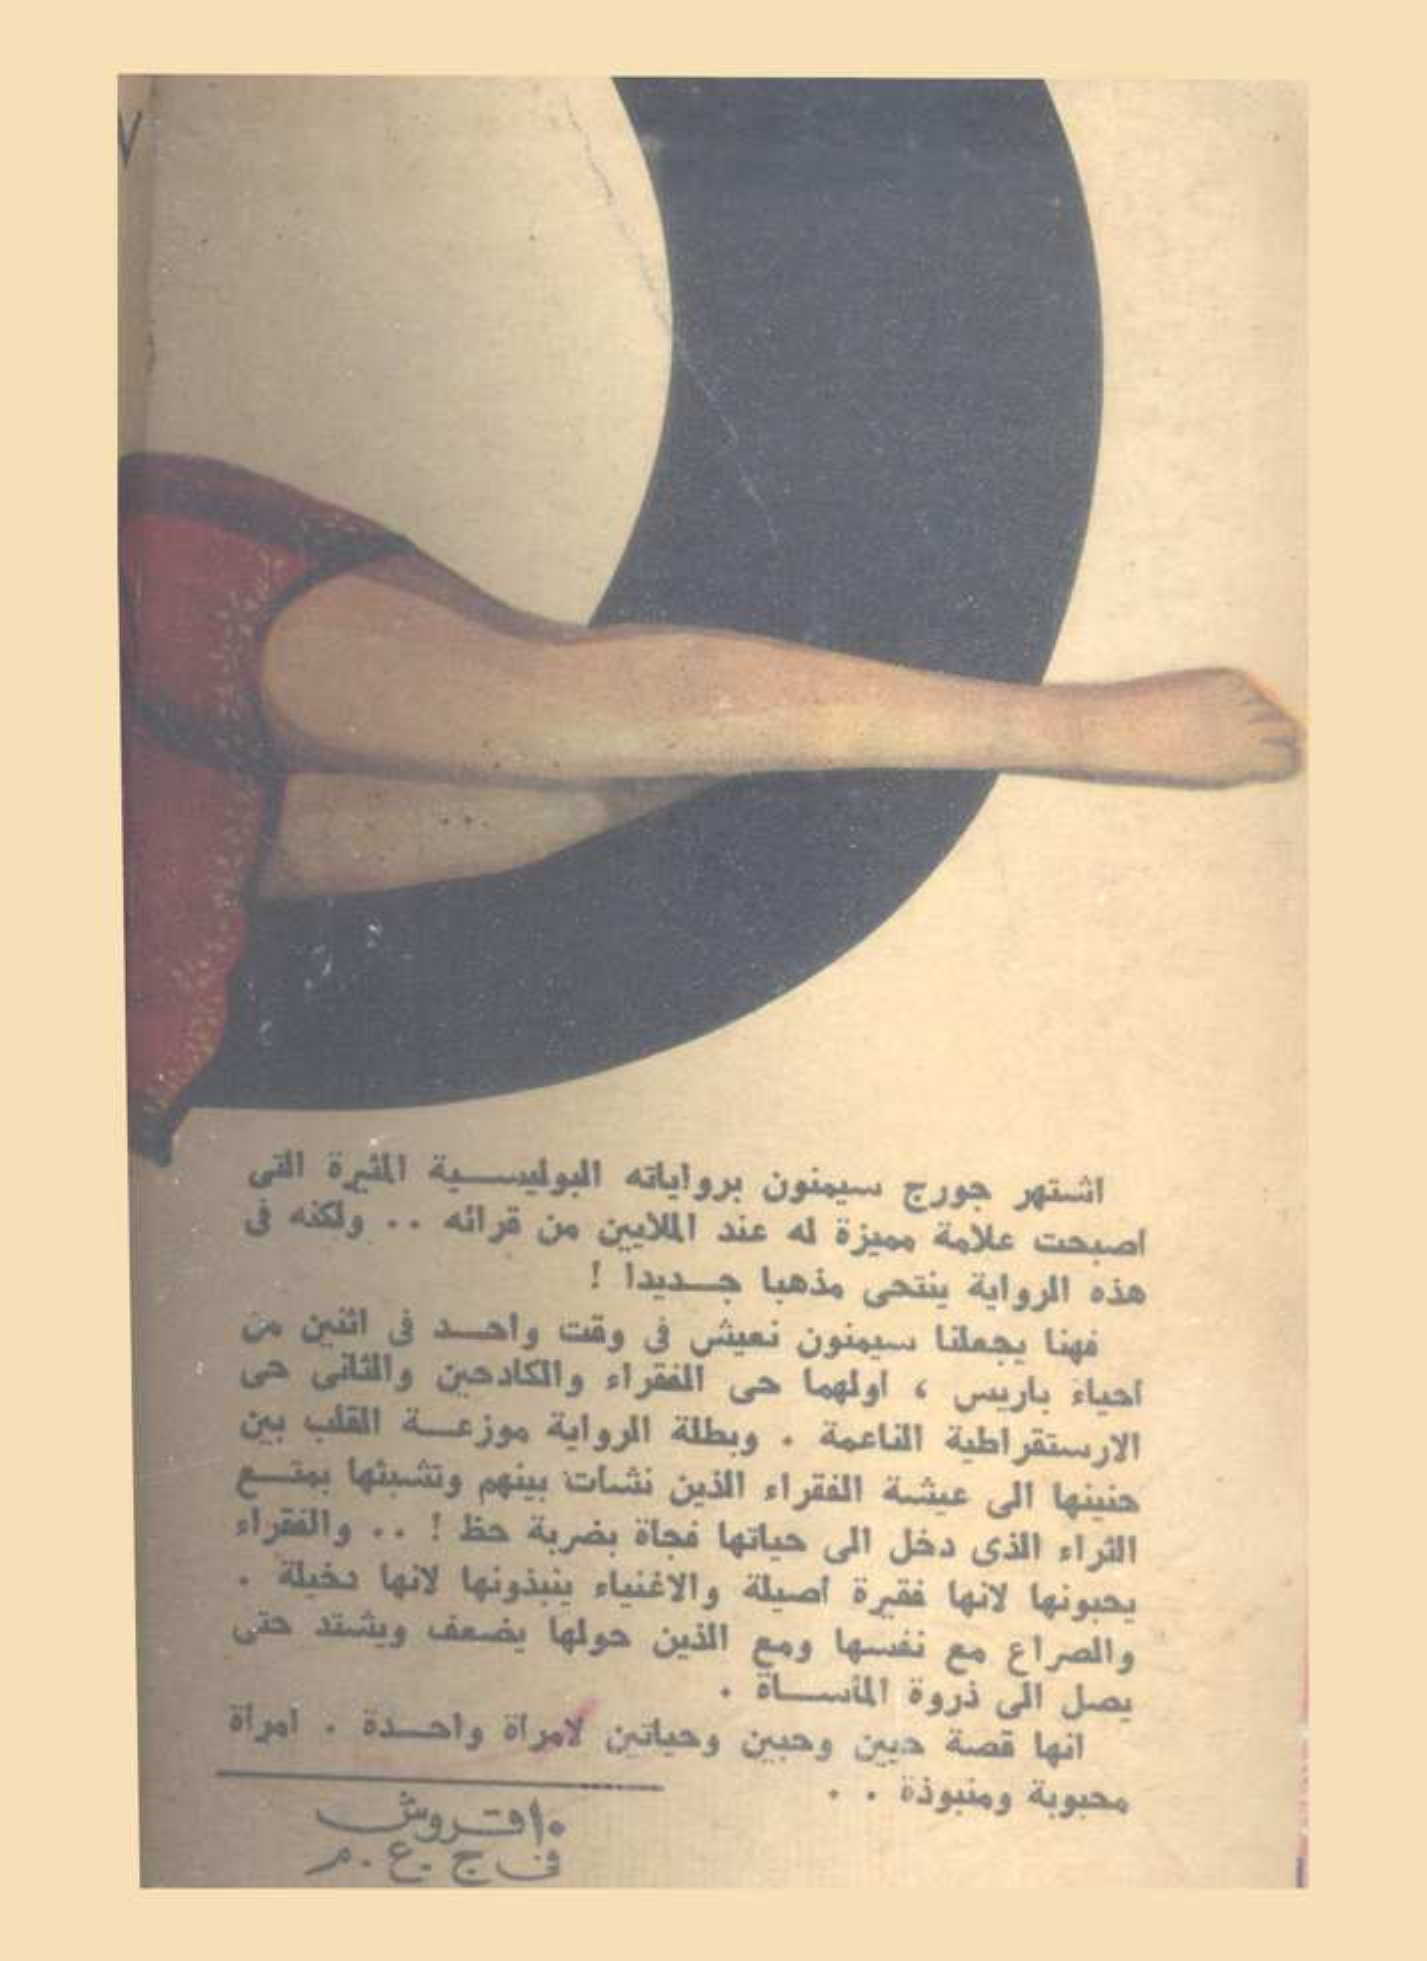 اشتهر جورج سيمنون برواياته البوليســـية المثيرة التى
اصبحت علامة مميزة له عند الملايين من قرائه .. ولكنه فى
هذه الرواية ينتحى مذهبا جـــديدا !
فهنا يجعلنا سيمنون نعيش فى وقت واحـــد فى اثنين من
احياء باريس ، اولهما حى الفقراء والكادحين والثانى حى
الارستقراطية الناعمة . وبطلة الرواية موزعـــة القلب بين
حنينها الى عيشة الفقراء الذين نشات بينهم وتشبثها بمتـــع
الثراء الذى دخل الى حياتها فجاة بضربة حظ ! .. والفقراء
يحبونها لانها فقيرة أصيلة والاغنياء ينبذونها لانها دخيلة .
والصراع مع نفسها ومع الذين حولها يضعف ويشتد حتى
يصل الى ذروة المأســـاة .
انها قصة حيين وحبين وحياتين لامراة واحـــدة . امراة
محبوبة ومنبوذة . .
١٠ قـروش
فى ج . ع . م